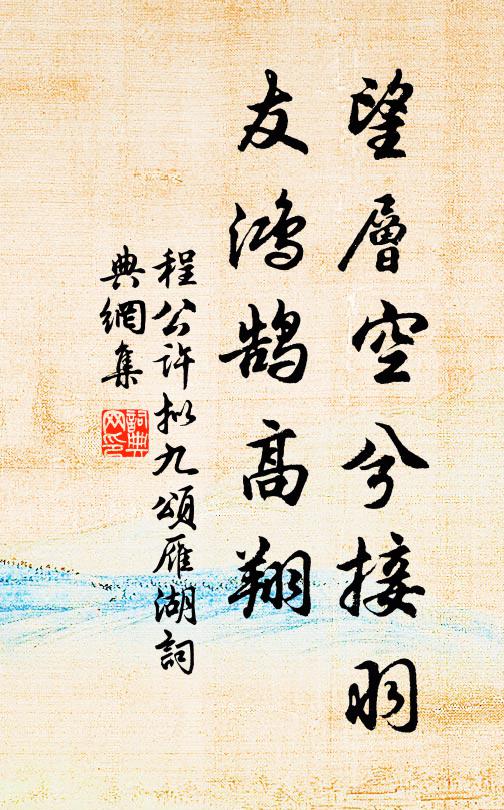 望層空兮接羽
友鴻鵠高翔
程公許拟九頌雁湖詞
典網集
詞典网印